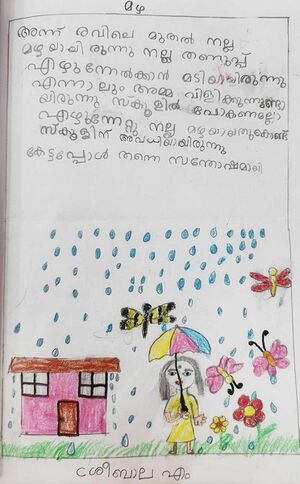 മഴ
അന്ന് രവിലെ മുതൽ നല്ല
മഴയായിരുന്നു നല്ല തണുപ്പ്
എഴുന്നേൽക്കാൻ മടിയായിരുന്നു
എന്നാലും അമ്മ വിളിക്കുന്നുണ്ടാ
യിരുന്നു സ്ക്കൂളിൽ പോകണല്ലോ
എഴുന്നേറ്റു നല്ല മഴയായതുകൊണ്ട്
സ്ക്കൂളിന് അവധിയായിരുന്നു
കേട്ടപ്പോൾ തന്നെ സന്തോഷമായി
ശ്രീബാല എം